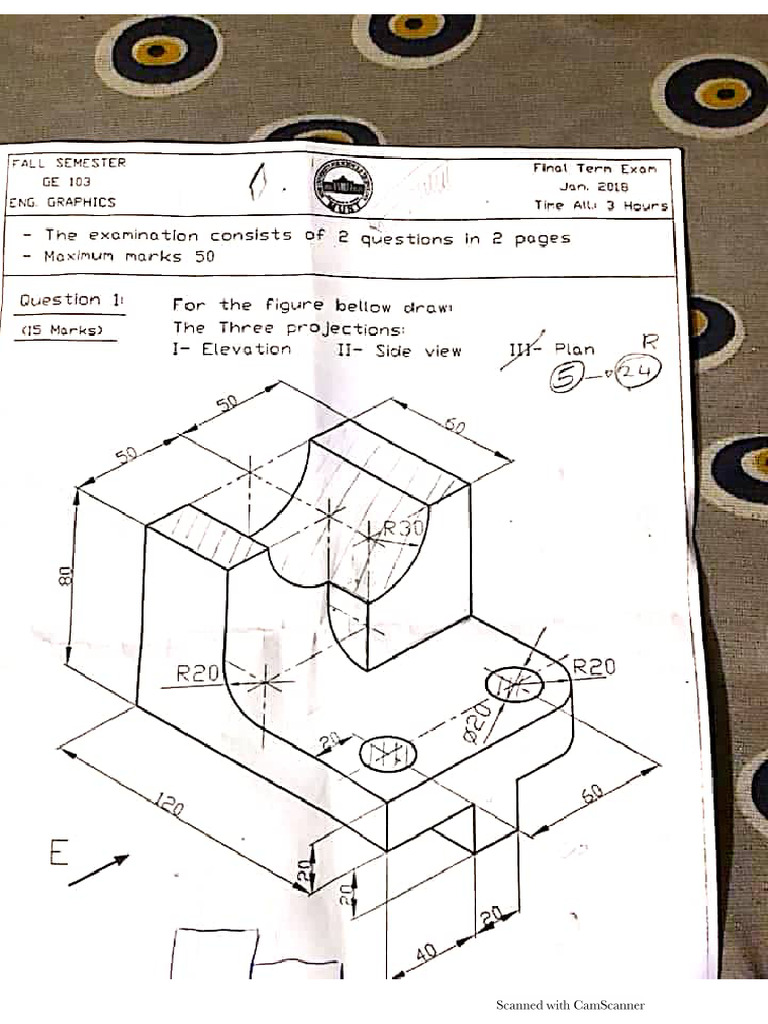 FALL SEMESTER
GE 103
ENG. GRAPHICS
MUST
Final Term Exam
Jan. 2018
Time All.: 3 Hours
- The examination consists of 2 questions in 2 pages
- Maximum marks 50
Question 1:
(15 Marks)
For the figure bellow draw:
The Three projections:
I- Elevation II- Side view III- Plan
R
5 24
50
50
60
80
R30
R20
R20
Ø20
20
120
60
E
20
20
20
40
Scanned with CamScanner